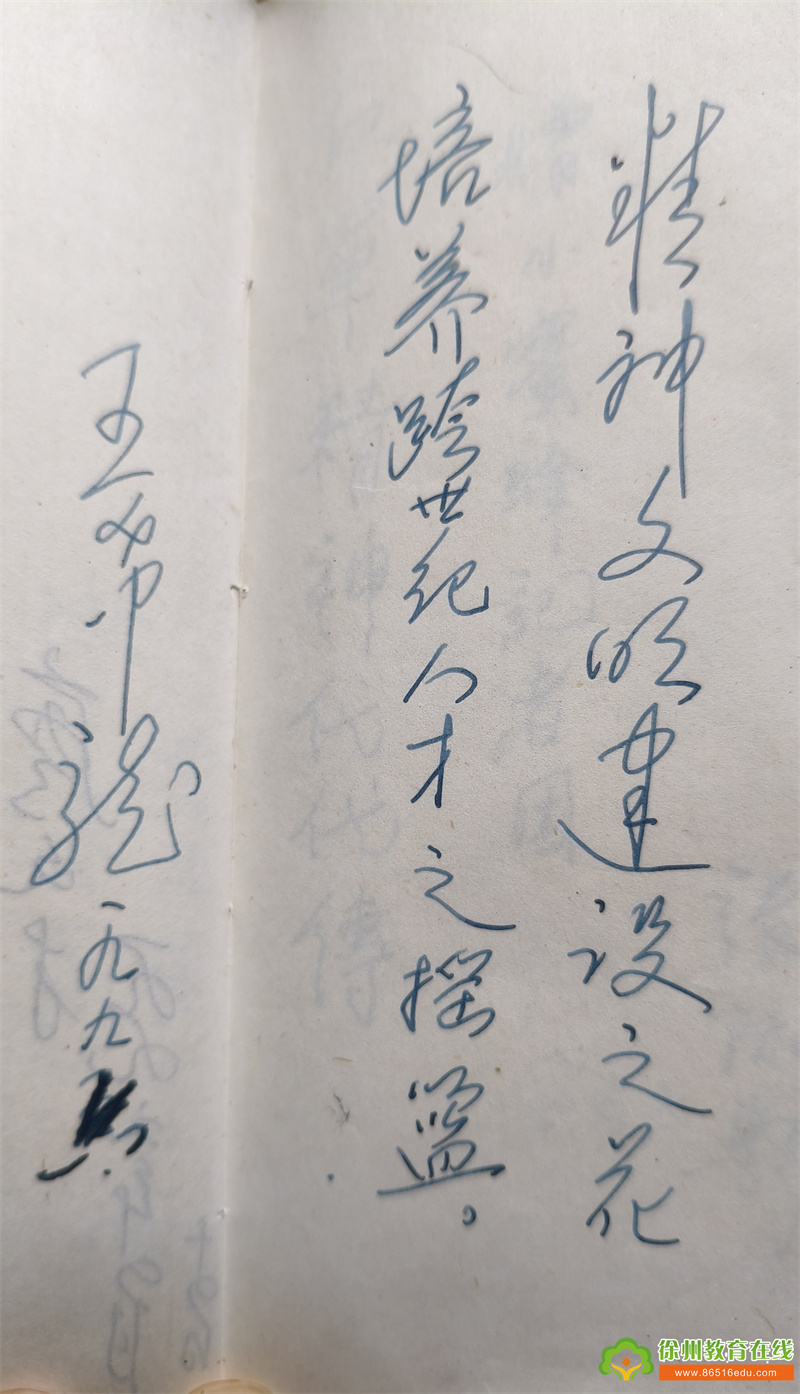 精神文明建设之花
培养跨世纪人才之摇篮。
王希龙 一九九
徐州教育在线
www.86516edu.com